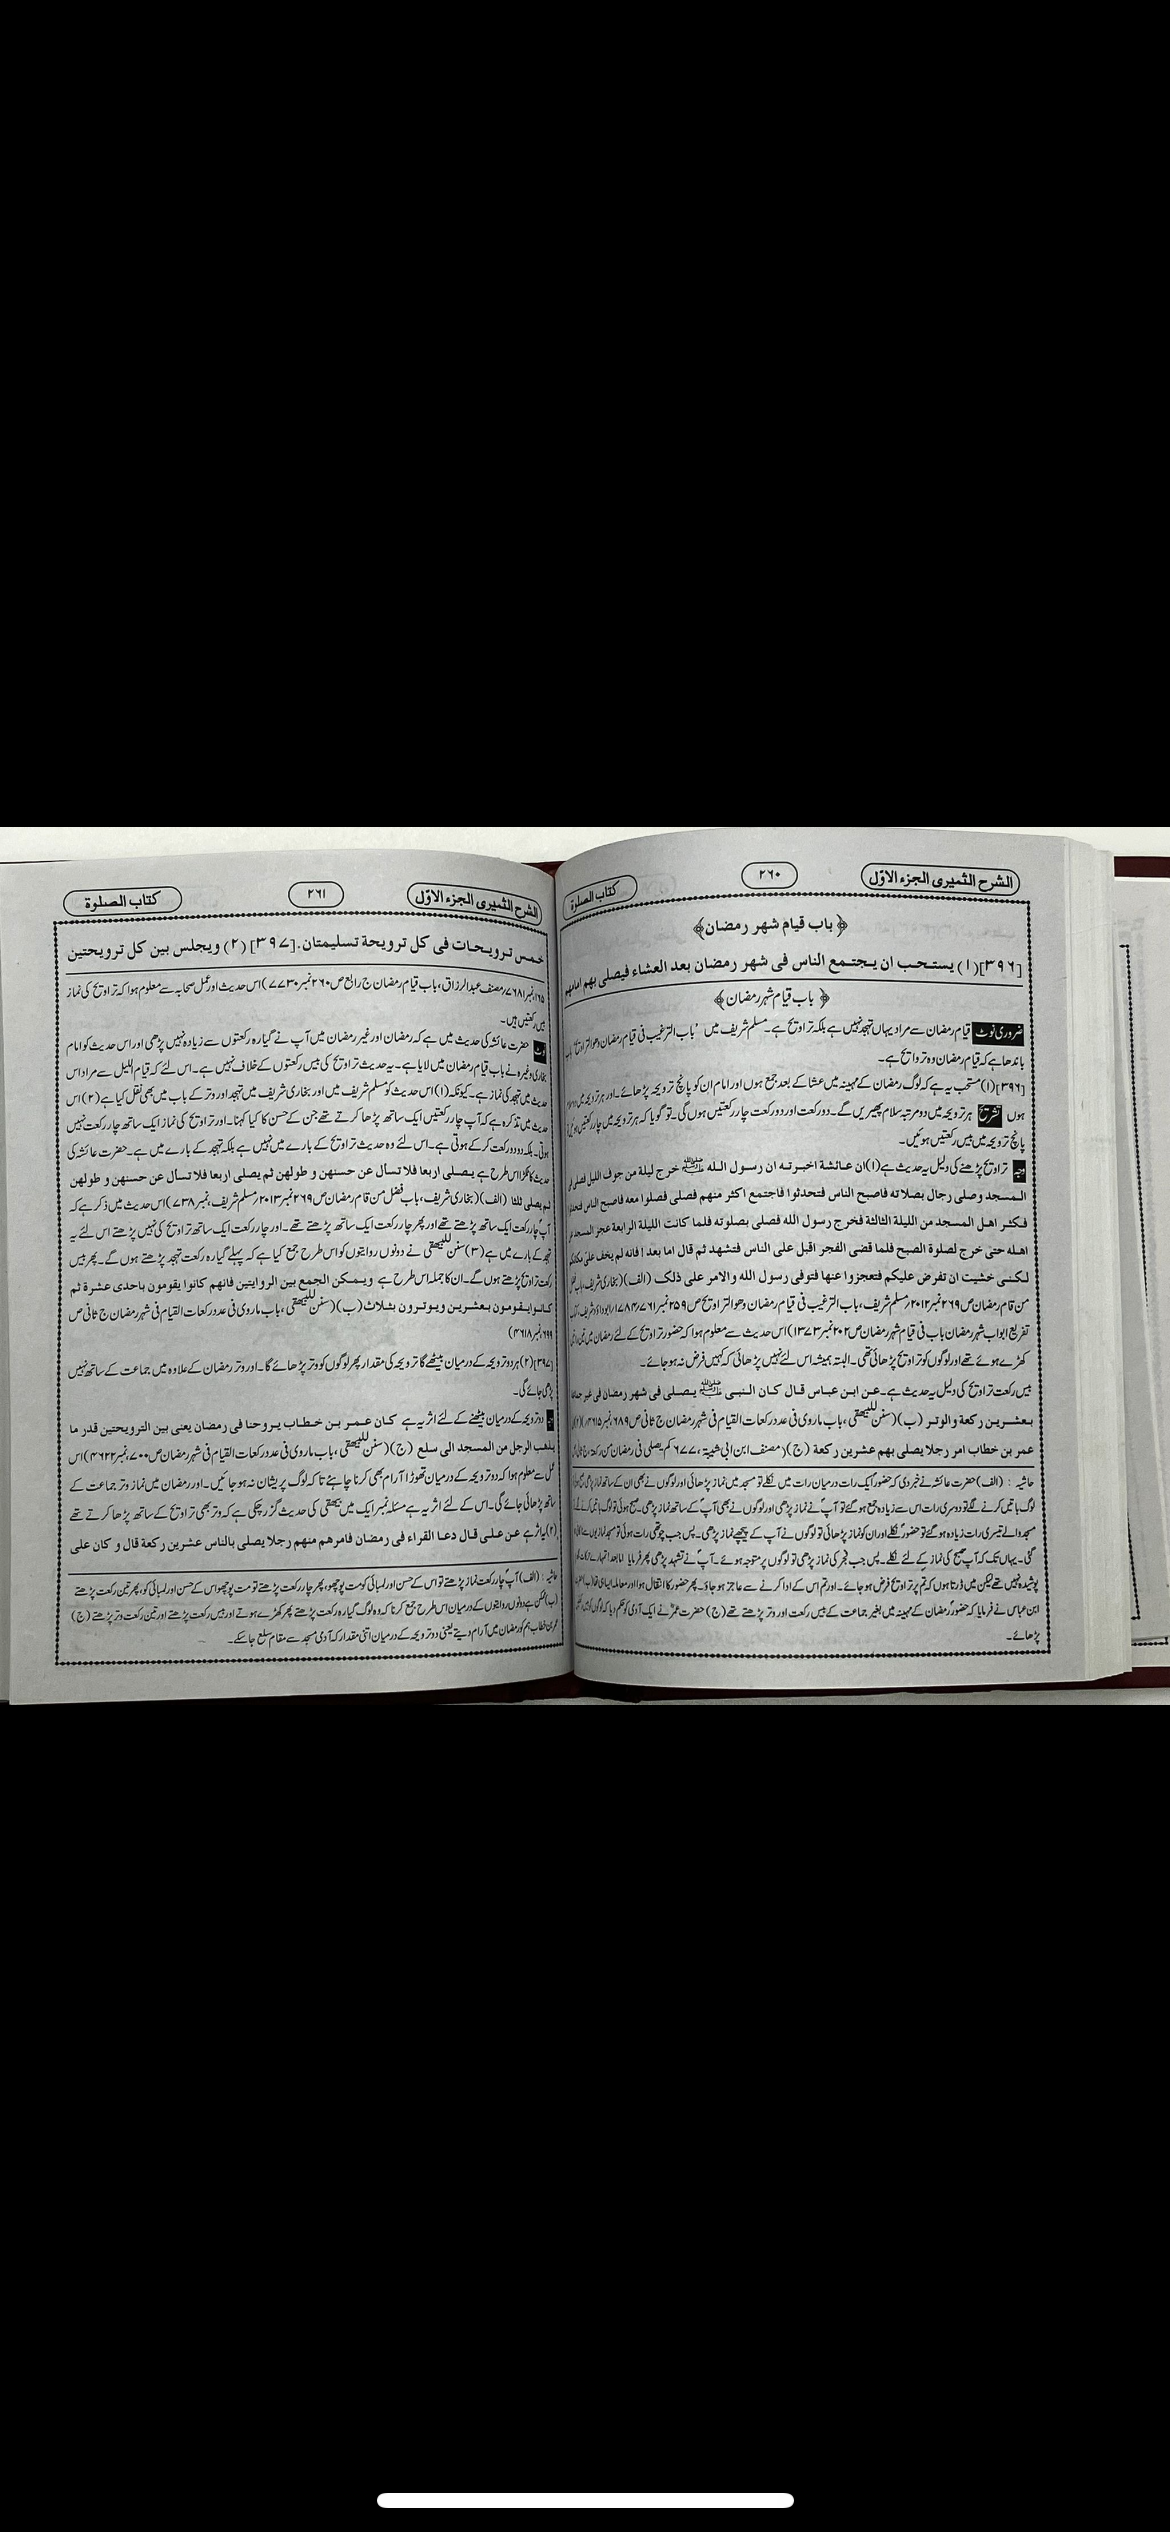 الشرح الثميرى الجزء الاوّل
۲۶۰
كتاب الصلوة
﴿ باب قيام شهر رمضان﴾
[۳۹۶](۱) يستحب ان يجتمع الناس فى شهر رمضان بعد العشاء فيصلى بهم امامهم
﴿ باب قیام شہر رمضان﴾
ضروری نوٹ قیام رمضان سے مراد یہاں تہجد نہیں ہے بلکہ تراویح ہے۔ مسلم شریف میں 'باب الترغیب فی قیام رمضان وھو التراویح'
باندھا ہے کہ قیام رمضان وہ تراویح ہے۔
[۳۹۶](۱) مستحب یہ ہے کہ لوگ رمضان کے مہینہ میں عشا کے بعد جمع ہوں اور امام ان کو پانچ ترویحہ پڑھائے۔ اور ہر ترویحہ میں
ہوں تشریح ہر ترویحہ میں دو مرتبہ سلام پھیریں گے۔ دو رکعت اور دو رکعت چار رکعتیں ہوں گی۔ تو گویا کہ ہر ترویحہ میں چار رکعتیں ہوئیں
پانچ ترویحہ میں بیس رکعتیں ہوئیں۔
وجہ تراویح پڑھنے کی دلیل یہ حدیث ہے (۱) ان عائشة اخبرته ان رسول الله ﷺ خرج ليلة من جوف الليل فصلى فى
المسجد وصلى رجال بصلاته فاصبح الناس فتحدثوا فاجتمع اكثر منهم فصلى فصلوا معه فاصبح الناس فتحدثوا
فكثر اهل المسجد من الليلة الثالثة فخرج رسول الله فصلى بصلوته فلما كانت الليلة الرابعة عجز المسجد عن
اهله حتى خرج لصلوة الصبح فلما قضى الفجر اقبل على الناس فتشهد ثم قال اما بعد! فانه لم يخف على مكانكم
لكنى خشيت ان تفرض عليكم فتعجزوا عنها فتوفى رسول الله والامر على ذلك (الف) (بخاری شریف، باب فضل
من قام رمضان ص ۲۶۹ نمبر ۲۰۱۲ / مسلم شریف، باب الترغیب فی قیام رمضان وھو التراویح ص ۲۵۹ نمبر ۷۶۱ / ۱۷۸۴ / ابوداؤد شریف، کتاب
تفریع ابواب شہر رمضان باب فی قیام شہر رمضان ص ۲۰۲ نمبر ۱۳۷۳) اس حدیث سے معلوم ہوا کہ حضورؐ تراویح کے لئے رمضان میں
کھڑے ہوئے تھے اور لوگوں کو تراویح پڑھائی تھی۔ البتہ ہمیشہ اس لئے نہیں پڑھائی کہ کہیں فرض نہ ہو جائے۔
بیس رکعت تراویح کی دلیل یہ حدیث ہے۔ عن ابن عباس قال كان النبى ﷺ يصلى فى شهر رمضان فى غير جماعة
بعشرين ركعة والوتر (ب) (سنن للبیھقی، باب ماروی فی عدد رکعات القیام فی شہر رمضان ج ثانی ص ۶۸۹ نمبر ۴۶۱۵)
عمر بن خطاب امر رجلا يصلى بهم عشرين ركعة (ج) (مصنف ابن ابی شیبۃ، ۶۷۷ کم یصلی فی رمضان من رکعۃ
حاشیہ : (الف) حضرت عائشہ نے خبر دی کہ حضورؐ ایک رات درمیان رات میں نکلے تو مسجد میں نماز پڑھائی اور لوگوں نے بھی ان کے ساتھ نماز پڑھی
لوگ باتیں کرنے لگے تو دوسری رات اس سے زیادہ جمع ہو گئے تو آپؐ نے نماز پڑھی اور لوگوں نے بھی آپؐ کے ساتھ نماز پڑھی۔ صبح ہوئی تو لوگ باتیں کرنے لگے
مسجد والے تیسری رات زیادہ ہو گئے تو حضورؐ نکلے اور ان کو نماز پڑھائی تو لوگوں نے آپؐ کے پیچھے نماز پڑھی۔ پس جب چوتھی رات ہوئی تو مسجد نمازیوں سے
گئی۔ یہاں تک کہ آپؐ صبح کی نماز کے لئے نکلے۔ پس جب فجر کی نماز پڑھی تو لوگوں پر متوجہ ہوئے۔ آپؐ نے تشہد پڑھی پھر فرمایا اما بعد!
پوشیدہ نہیں تھے لیکن میں ڈرتا ہوں کہ تم پر تراویح فرض ہو جائے۔ اور تم اس کے ادا کرنے سے عاجز ہو جاؤ۔ پھر حضورؐ کا انتقال ہوا اور معاملہ ایسا ہی
ابن عباس نے فرمایا کہ حضورؐ رمضان کے مہینہ میں بغیر جماعت کے بیس رکعت اور وتر پڑھتے تھے (ج) حضرت عمرؓ نے ایک آدمی کو حکم دیا کہ لوگوں کو
پڑھائے۔
الشرح الثميرى الجزء الاوّل
۲۶۱
كتاب الصلوة
خمس ترويحات فى كل ترويحة تسليمتان. [۳۹۷](۲) ويجلس بين كل ترويحتين
۱۶۵، نمبر ۷۶۸۱ / مصنف عبدالرزاق، باب قیام رمضان ج رابع ص ۲۶۰ نمبر ۷۷۳۰) اس حدیث اور عمل صحابہ سے معلوم ہوا کہ تراویح کی نماز
بیس رکعتیں ہیں۔
نوٹ حضرت عائشہ کی حدیث میں ہے کہ رمضان اور غیر رمضان میں آپ نے گیارہ رکعتوں سے زیادہ نہیں پڑھی اور اس حدیث کو امام
بخاری وغیرہ نے باب قیام رمضان میں لایا ہے۔ یہ حدیث تراویح کی بیس رکعتوں کے خلاف نہیں ہے۔ اس لئے کہ قیام اللیل سے مراد اس
حدیث میں تہجد کی نماز ہے۔ کیونکہ (۱) اس حدیث کو مسلم شریف میں اور بخاری شریف میں تہجد اور وتر کے باب میں بھی نقل کیا ہے (۲) اس
حدیث میں تذکرہ ہے کہ آپ چار رکعتیں ایک ساتھ پڑھا کرتے تھے جن کے حسن کا کیا کہنا۔ اور تراویح کی نماز ایک ساتھ چار رکعت نہیں
ہوتی۔ بلکہ دو دو رکعت کر کے ہوتی ہے۔ اس لئے وہ حدیث تراویح کے بارے میں نہیں ہے بلکہ تہجد کے بارے میں ہے۔ حضرت عائشہ کی
حدیث کا ٹکڑا اس طرح ہے يصلى اربعا فلا تسأل عن حسنهن و طولهن ثم يصلى اربعا فلا تسأل عن حسنهن و طولهن
ثم يصلى ثلثا (الف) (بخاری شریف، باب فضل من قام رمضان ص ۲۶۹ نمبر ۲۰۱۳ / مسلم شریف، نمبر ۷۳۸) اس حدیث میں ذکر ہے کہ
آپؐ چار رکعت ایک ساتھ پڑھتے تھے اور پھر چار رکعت ایک ساتھ پڑھتے تھے۔ اور چار رکعت ایک ساتھ تراویح کی نہیں پڑھتے اس لئے یہ
تہجد کے بارے میں ہے (۳) سنن للبیھقی نے دونوں روایتوں کو اس طرح جمع کیا ہے کہ پہلے گیارہ رکعت تہجد پڑھتے ہوں گے۔ پھر بیس
رکعت تراویح پڑھتے ہوں گے۔ ان کا جملہ اس طرح ہے ويمكن الجمع بين الروايتين فانهم كانوا يقومون باحدى عشرة ثم
كانوا يقومون بعشرين ويوترون بثلاث (ب) (سنن للبیھقی، باب ماروی فی عدد رکعات القیام فی شہر رمضان ج ثانی ص
۶۹۹، نمبر ۴۶۱۸)
[۳۹۷](۲) ہر دو ترویحہ کے درمیان بیٹھے گا ترویحہ کی مقدار پھر لوگوں کو وتر پڑھائے گا۔ اور وتر رمضان کے علاوہ میں جماعت کے ساتھ نہیں
پڑھی جائے گی۔
وجہ دو ترویحہ کے درمیان بیٹھنے کے لئے اثر یہ ہے كان عمر بن خطاب يروحنا فى رمضان يعنى بين الترويحتين قدر ما
يذهب الرجل من المسجد الى سلع (ج) (سنن للبیھقی، باب ماروی فی عدد رکعات القیام فی شہر رمضان ص ۷۰۰، نمبر ۴۶۲۲) اس
عمل سے معلوم ہوا کہ دو ترویحہ کے درمیان تھوڑا آرام بھی کرنا چاہئے تاکہ لوگ پریشان نہ ہو جائیں۔ اور رمضان میں نماز وتر جماعت کے
ساتھ پڑھائی جائے گی۔ اس کے لئے اثر یہ ہے مسئلہ نمبر ایک میں بیھقی کی حدیث گزر چکی ہے کہ وتر بھی تراویح کے ساتھ پڑھا کرتے تھے
(۲) یہ اثر ہے عن على قال دعا القراء فى رمضان فامرهم منهم رجلا يصلى بالناس عشرين ركعة قال و كان على
حاشیہ : (الف) آپؐ چار رکعت نماز پڑھتے تو اس کے حسن اور لمبائی کو مت پوچھو، پھر چار رکعت پڑھتے تو مت پوچھو اس کے حسن اور لمبائی کو، پھر تین رکعت پڑھتے
(ب) ممکن ہے دونوں روایتوں کے درمیان اس طرح جمع کرنا کہ وہ لوگ گیارہ رکعت پڑھتے پھر کھڑے ہوتے اور بیس رکعت پڑھتے اور تین رکعت وتر پڑھتے (ج)
عمر بن خطاب ہم کو رمضان میں آرام دیتے یعنی دو ترویحہ کے درمیان اتنی مقدار کہ آدمی مسجد سے مقام سلع جا سکے۔